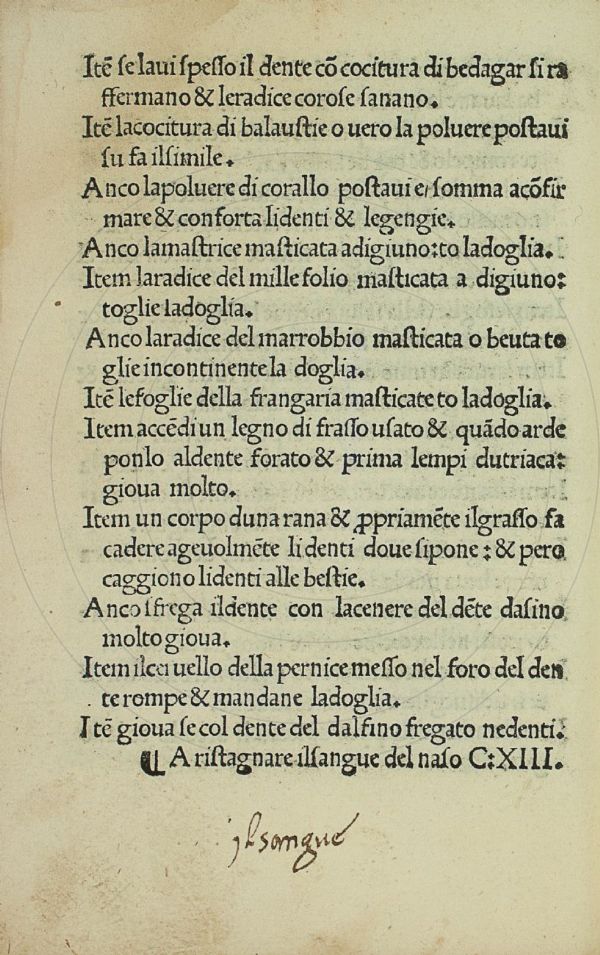 Itē ſe laui ſpeſſo il dente cō cocitura di bedagar ſi ra
ffermano & leradice coroſe ſanano.
Itē lacocitura di balauſtie o uero la poluere poſtaui
ſu fa ilſimile.
Anco lapoluere di corallo poſtaui e, ſomma acōfir
mare & conforta lidenti & legengie.
Anco lamaſtrice maſticata adigiuno: to ladoglia.
Item laradice del mille folio maſticata a digiuno:
toglie ladoglia.
Anco laradice del marrobbio maſticata o beuta to
glie incontinente la doglia.
Itē lefoglie della frangaria maſticate to ladoglia.
Item accēdi un legno di fraſſo uſato & quādo arde
ponlo aldente forato & prima lempi dutriaca:
gioua molto.
Item un corpo duna rana & ꝓpriamēte ilgraſſo fa
cadere ageuolmēte lidenti doue ſipone: & pero
caggiono lidenti alle beſtie.
Anco ſfrega ildente con lacenere del dēte daſino
molto gioua.
Item ilceruello della pernice meſſo nel foro del den
te rompe & mandane ladoglia.
Itē gioua ſe col dente del dalfino fregato nedenti.
¶ A riſtagnare ilſangue del naſo C:XIII.
ilsangue